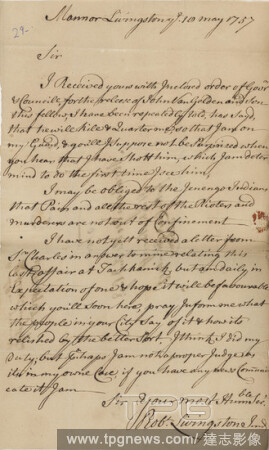 29-
Mannor Livingston ye. 10 may 1757
Sir
I Received yours with Inclosed order of Govr
& Councill, for the release of John Van Gelden and Son
this fellow, I have been repeatedly told, has Said,
that he will Kill & Quarter me, so that I am on
my Guard, & you'll I suppose not be Surprised when
you hear that I have Shott him, which I am deter
mind to do the first time I see him
I may be obliged to the Indians
that Pain and all the rest of the Rioters and
murderers are not out of Confinement
I have not yett received a letter from
Sr Charles in answer to mine relating this
last affair at Tachkanick, but am daily in
Expectation of one & hope it will be favourable
which you'll Soon hear, pray Inform me what
the people in your City Say of it & how its
relished by the better Sort. I think I did my
duty, but perhaps I am not a proper Judge as
its in my owne Case, if you have any news Communi
cate it I am
Sir your most Humble Ser.
Rob: Livingston Junr
www.tpgnews.com
達志影像